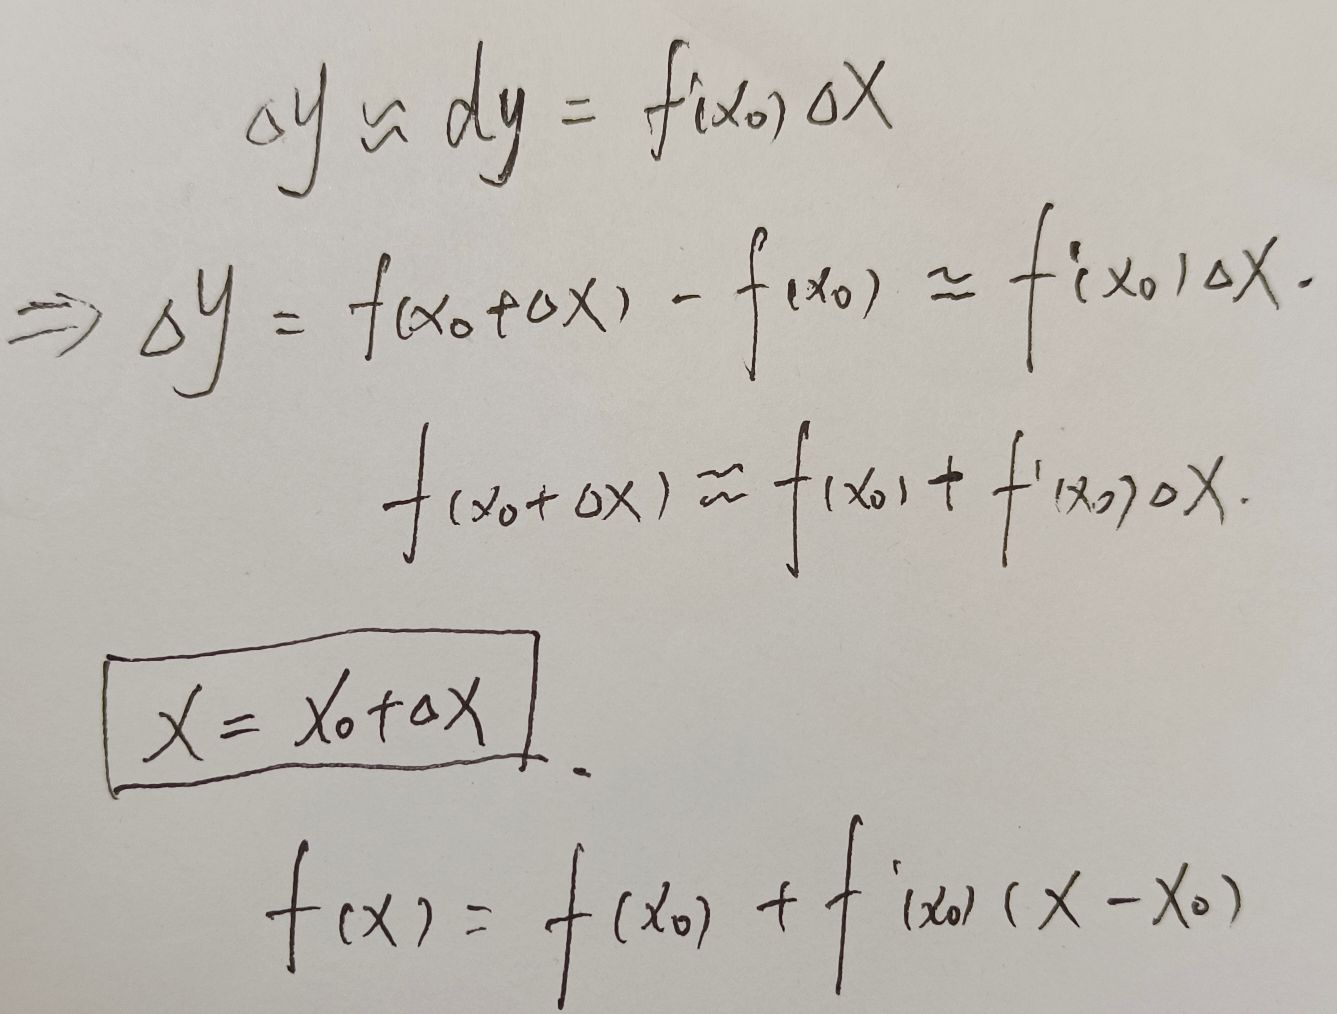 Δy ≈ dy = f'(x₀) Δx
⇒ Δy = f(x₀+Δx) - f(x₀) ≈ f'(x₀) Δx.
f(x₀+Δx) ≈ f(x₀) + f'(x₀) Δx.
x = x₀+Δx.
f(x) = f(x₀) + f'(x₀) (x-x₀)